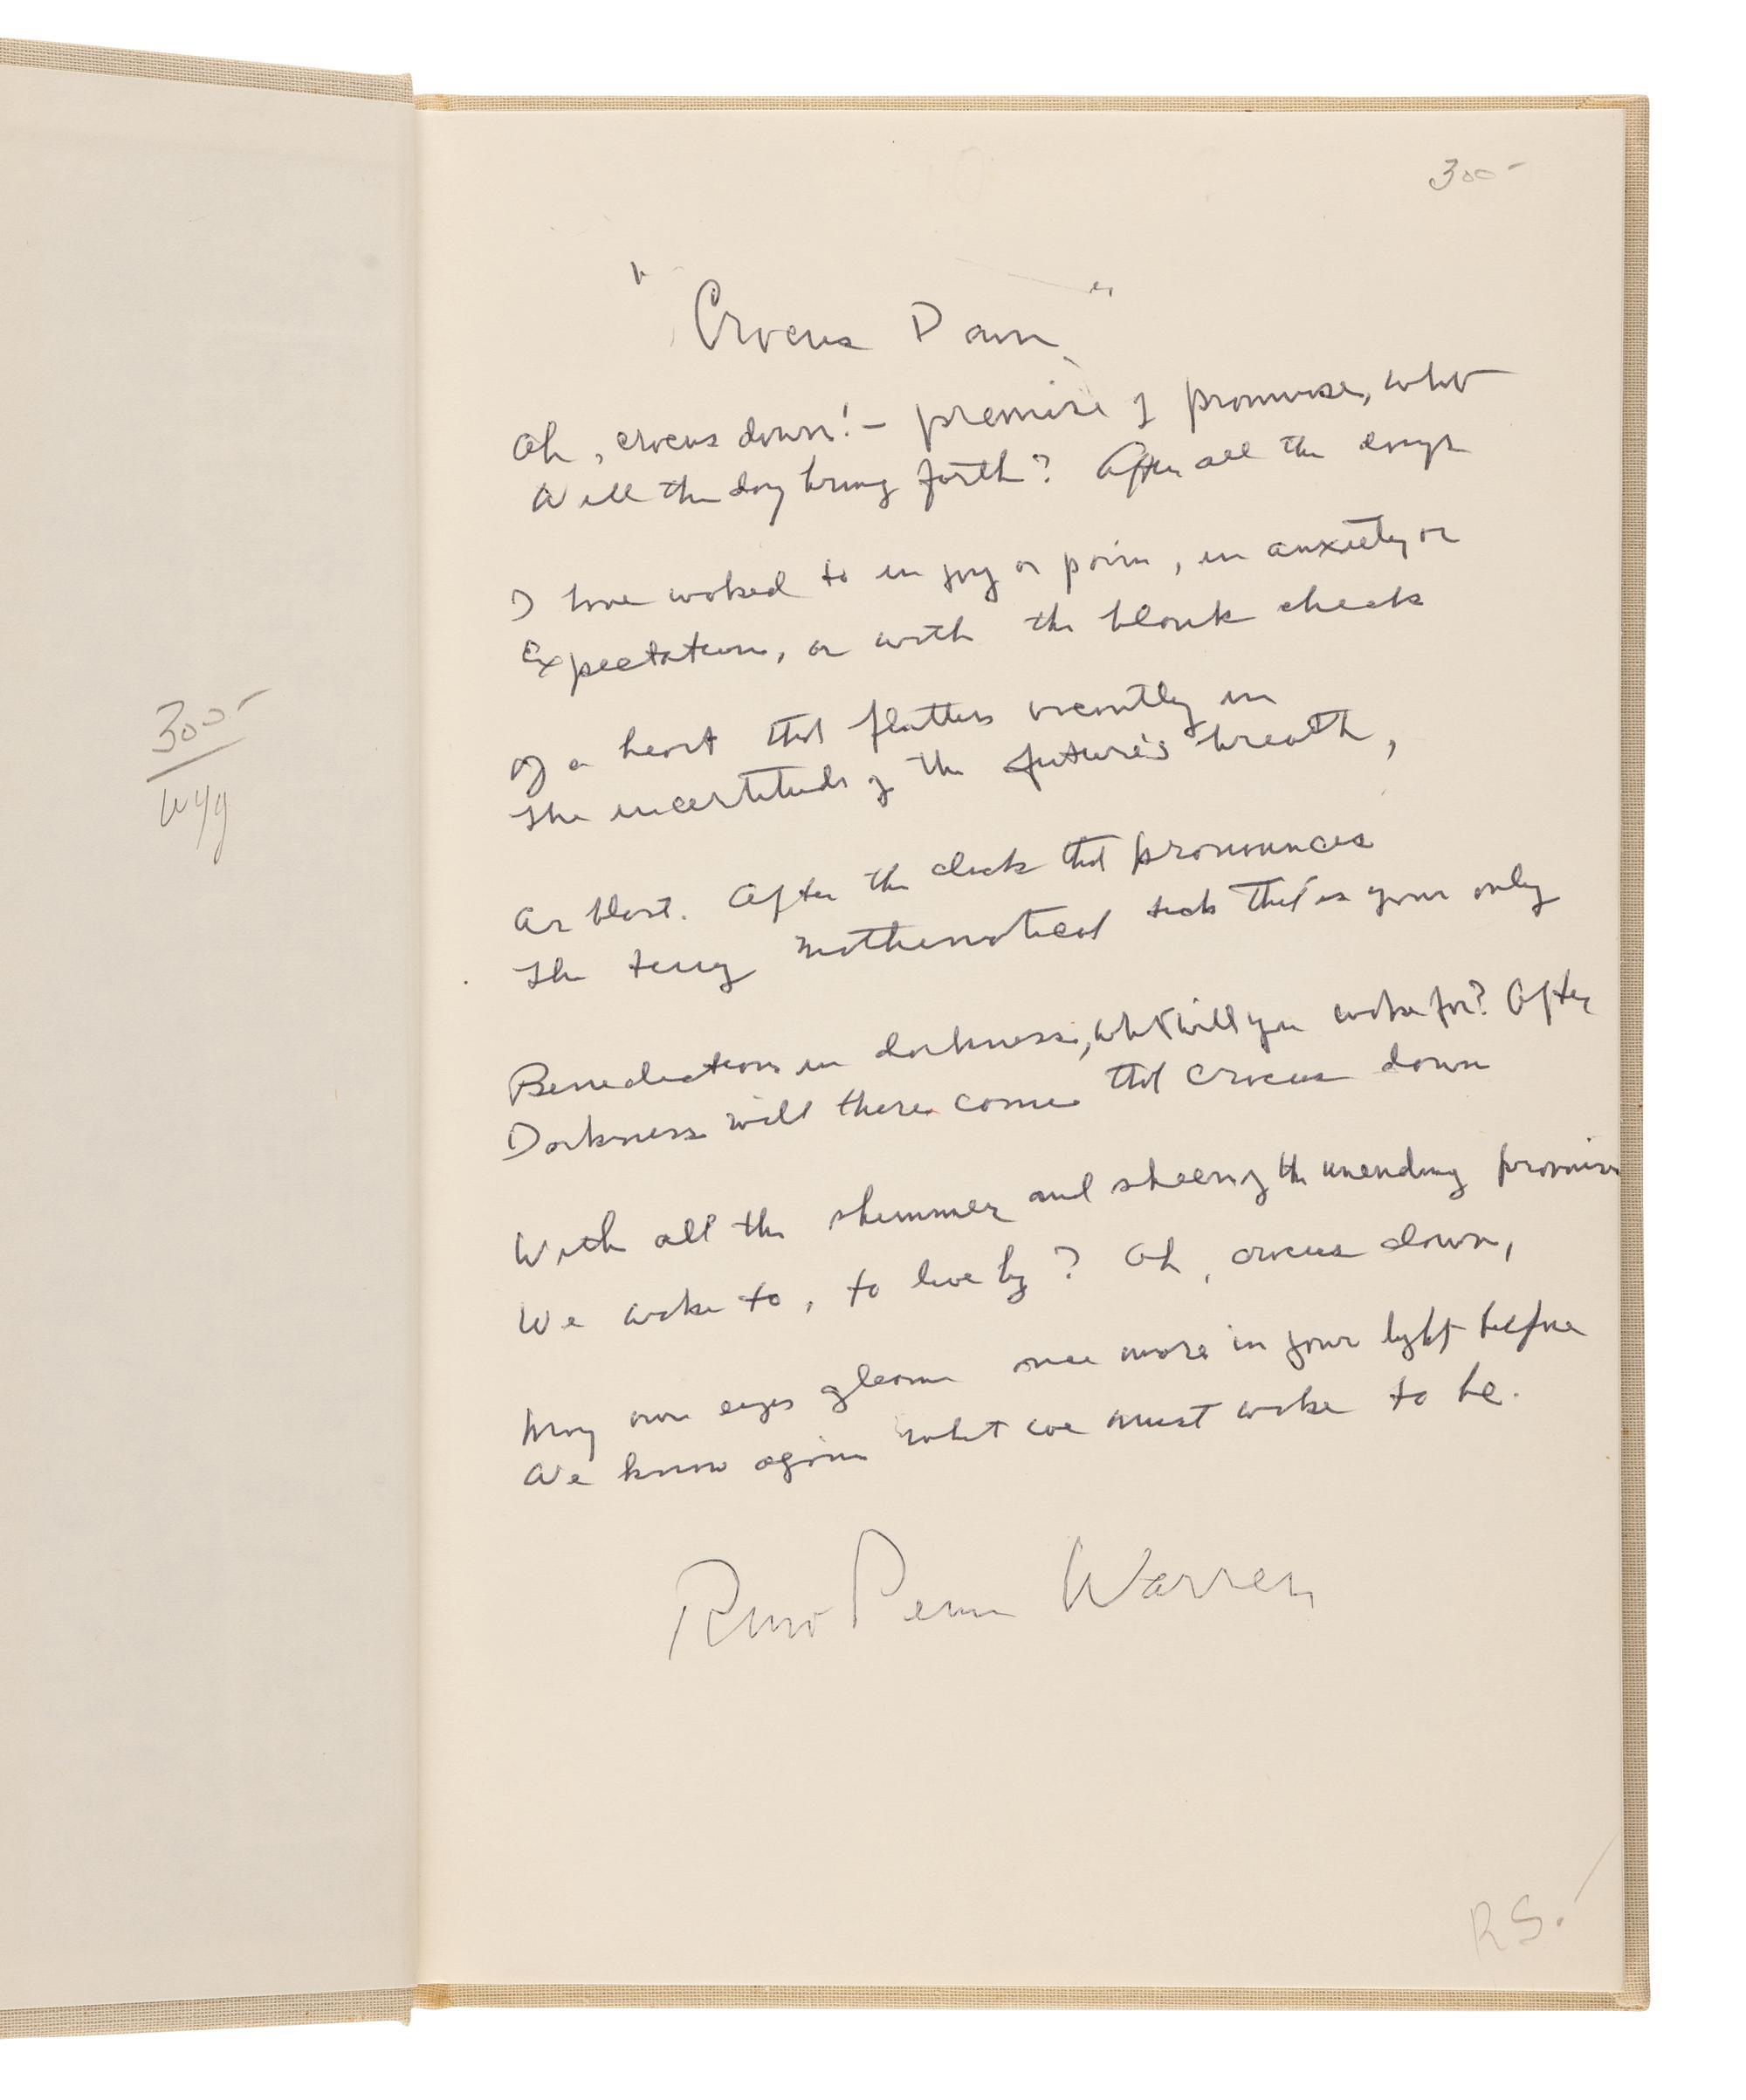 300-
"Crocus Dawn"
Oh, crocus dawn!— premise of promise, what
Will the day bring forth? After all the days
I have waked to in joy or pain, in anxiety or
Expectation, or with the blank check
Of a heart that flutters vacantly in
The incertitude of the future's breath,
Or blast. After the clock that pronounces
The tally mathematical that is your only
Benediction in darkness, what will you wake for? After
Darkness will there come that crocus dawn
With all the shimmer and sheen of the unending promise
We wake to, to live by? Oh, crocus dawn,
May our eyes gleam once more in your light before
We know again what we must wake to be.
Robert Penn Warren
300-
R S.